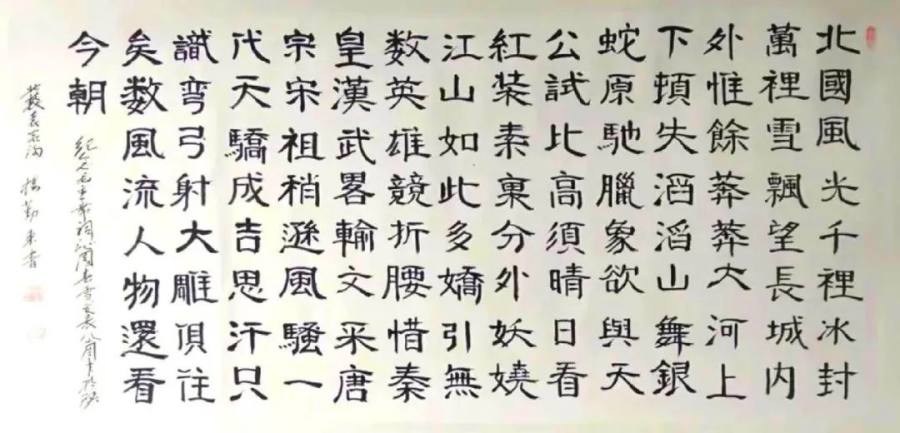 北國風光千裡冰封
萬裡雪飄望長城内
外惟餘莽莽大河上
下頓失滔滔山舞銀
蛇原馳臘象欲與天
公試比高須晴日看
紅裝素裹分外妖嬈
江山如此多嬌引無
数英雄競折腰惜秦
皇漢武畧輸文采唐
宗宋祖稍遜風騷一
代天驕成吉思汗只
識彎弓射大雕俱往
矣数風流人物還看
今朝
紀念毛主席詞沁園春雪發表
袁家溝 楊勤東書